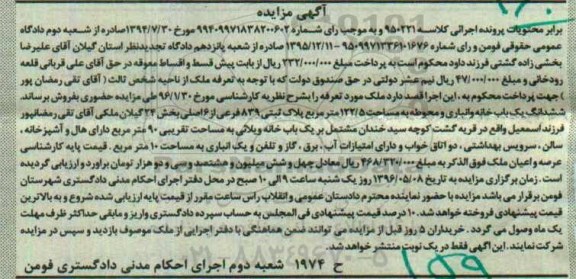 آگهی مزایده
برابر محتویات پرونده اجرائی کلاسه ۹۵۰۲۳۱ و به موجب رای شماره ۹۴۰۹۹۷۱۸۳۸۲۰۰۶۰۲ مورخ ۱۳۹۴/۷/۳۰ صادره از شعبه دوم دادگاه
عمومی حقوقی فومن و رای شماره ۹۵۰۹۹۷۱۲۳۶۱۰۱۶۷۶ – ۱۳۹۵/۱۲/۱۱ صادره از شعبه پانزدهم دادگاه تجدیدنظر استان گیلان آقای علیرضا
بخشی زاده گشتی فرزند داود محکوم است به پرداخت مبلغ ۲۳۲/۰۰۰/۰۰۰ ریال از بابت پیش قسط و اقساط معوقه در حق آقای علی قربانی قلعه
رودخانی و مبلغ ۴۷/۰۰۰/۰۰۰ ریال نیم عشر دولتی در حق صندوق دولت که با توجه به تعرفه ملک از ناحیه شخص ثالث ( آقای تقی رمضان پور
) جهت پرداخت محکوم به ، این اجرا قصد دارد ملک مورد تعرفه را بشرح نظریه کارشناسی مورخ ۹۶/۱/۳۰ طی مزایده حضوری بفروش برساند.
ششدانگ یک باب خانه وانباری و محوطه به مساحت ۱۲۲/۵ متر مربع پلاک ثبتی ۸۳۹ فرعی از ۶ اصلی بخش ۲۴ گیلان ملکی آقای تقی رمضانپور
فرزند اسمعیل واقع در قریه گشت کوچه سید خندان مشتمل بر یک باب خانه ویلائی به مساحت تقریبی ۹۰ متر مربع دارای هال و آشپزخانه ،
سالن ، سرویس بهداشتی ، دو اتاق خواب و دارای امتیازات آب ، برق ، گاز و تلفن و یک انباری به مساحت ۱۰ متر مربع . قیمت پایه کارشناسی
عرصه واعیان ملک فوق الذکر به مبلغ ۴۶۸/۳۲۰/۰۰۰ ریال معادل چهل و شش میلیون و هشتصد و سی و دو هزار تومان برآورد و ارزیابی گردیده
است. زمان برگزاری مزایده به تاریخ ۱۳۹۶/۰۵/۰۸ روز یک شنبه ساعت ۹ الی ۱۰ صبح در محل دفتر اجرای احکام مدنی دادگستری شهرستان
فومن برقرار می باشد مزایده با حضور نماینده محترم دادستان عمومی و انقلاب راس ساعت مقرر از قیمت پایه ارزیابی شده شروع و به بالاترین
قیمت پیشنهادی فروخته خواهد شد. ۱۰ درصد قیمت پیشنهادی فی المجلس به حساب سپرده دادگستری واریز و مابقی حداکثر ظرف مهلت
یک ماه وصول می گردد . خریداران ۵ روز قبل از مزایده می توانند ضمن هماهنگی با دفتر اجرایی از ملک موصوف بازدید و سپس در مزایده
شرکت نمایند . این آگهی فقط در یک نوبت منتشر خواهد شد.
ح ۱۹۷۴ شعبه دوم اجرای احکام مدنی دادگستری فومن